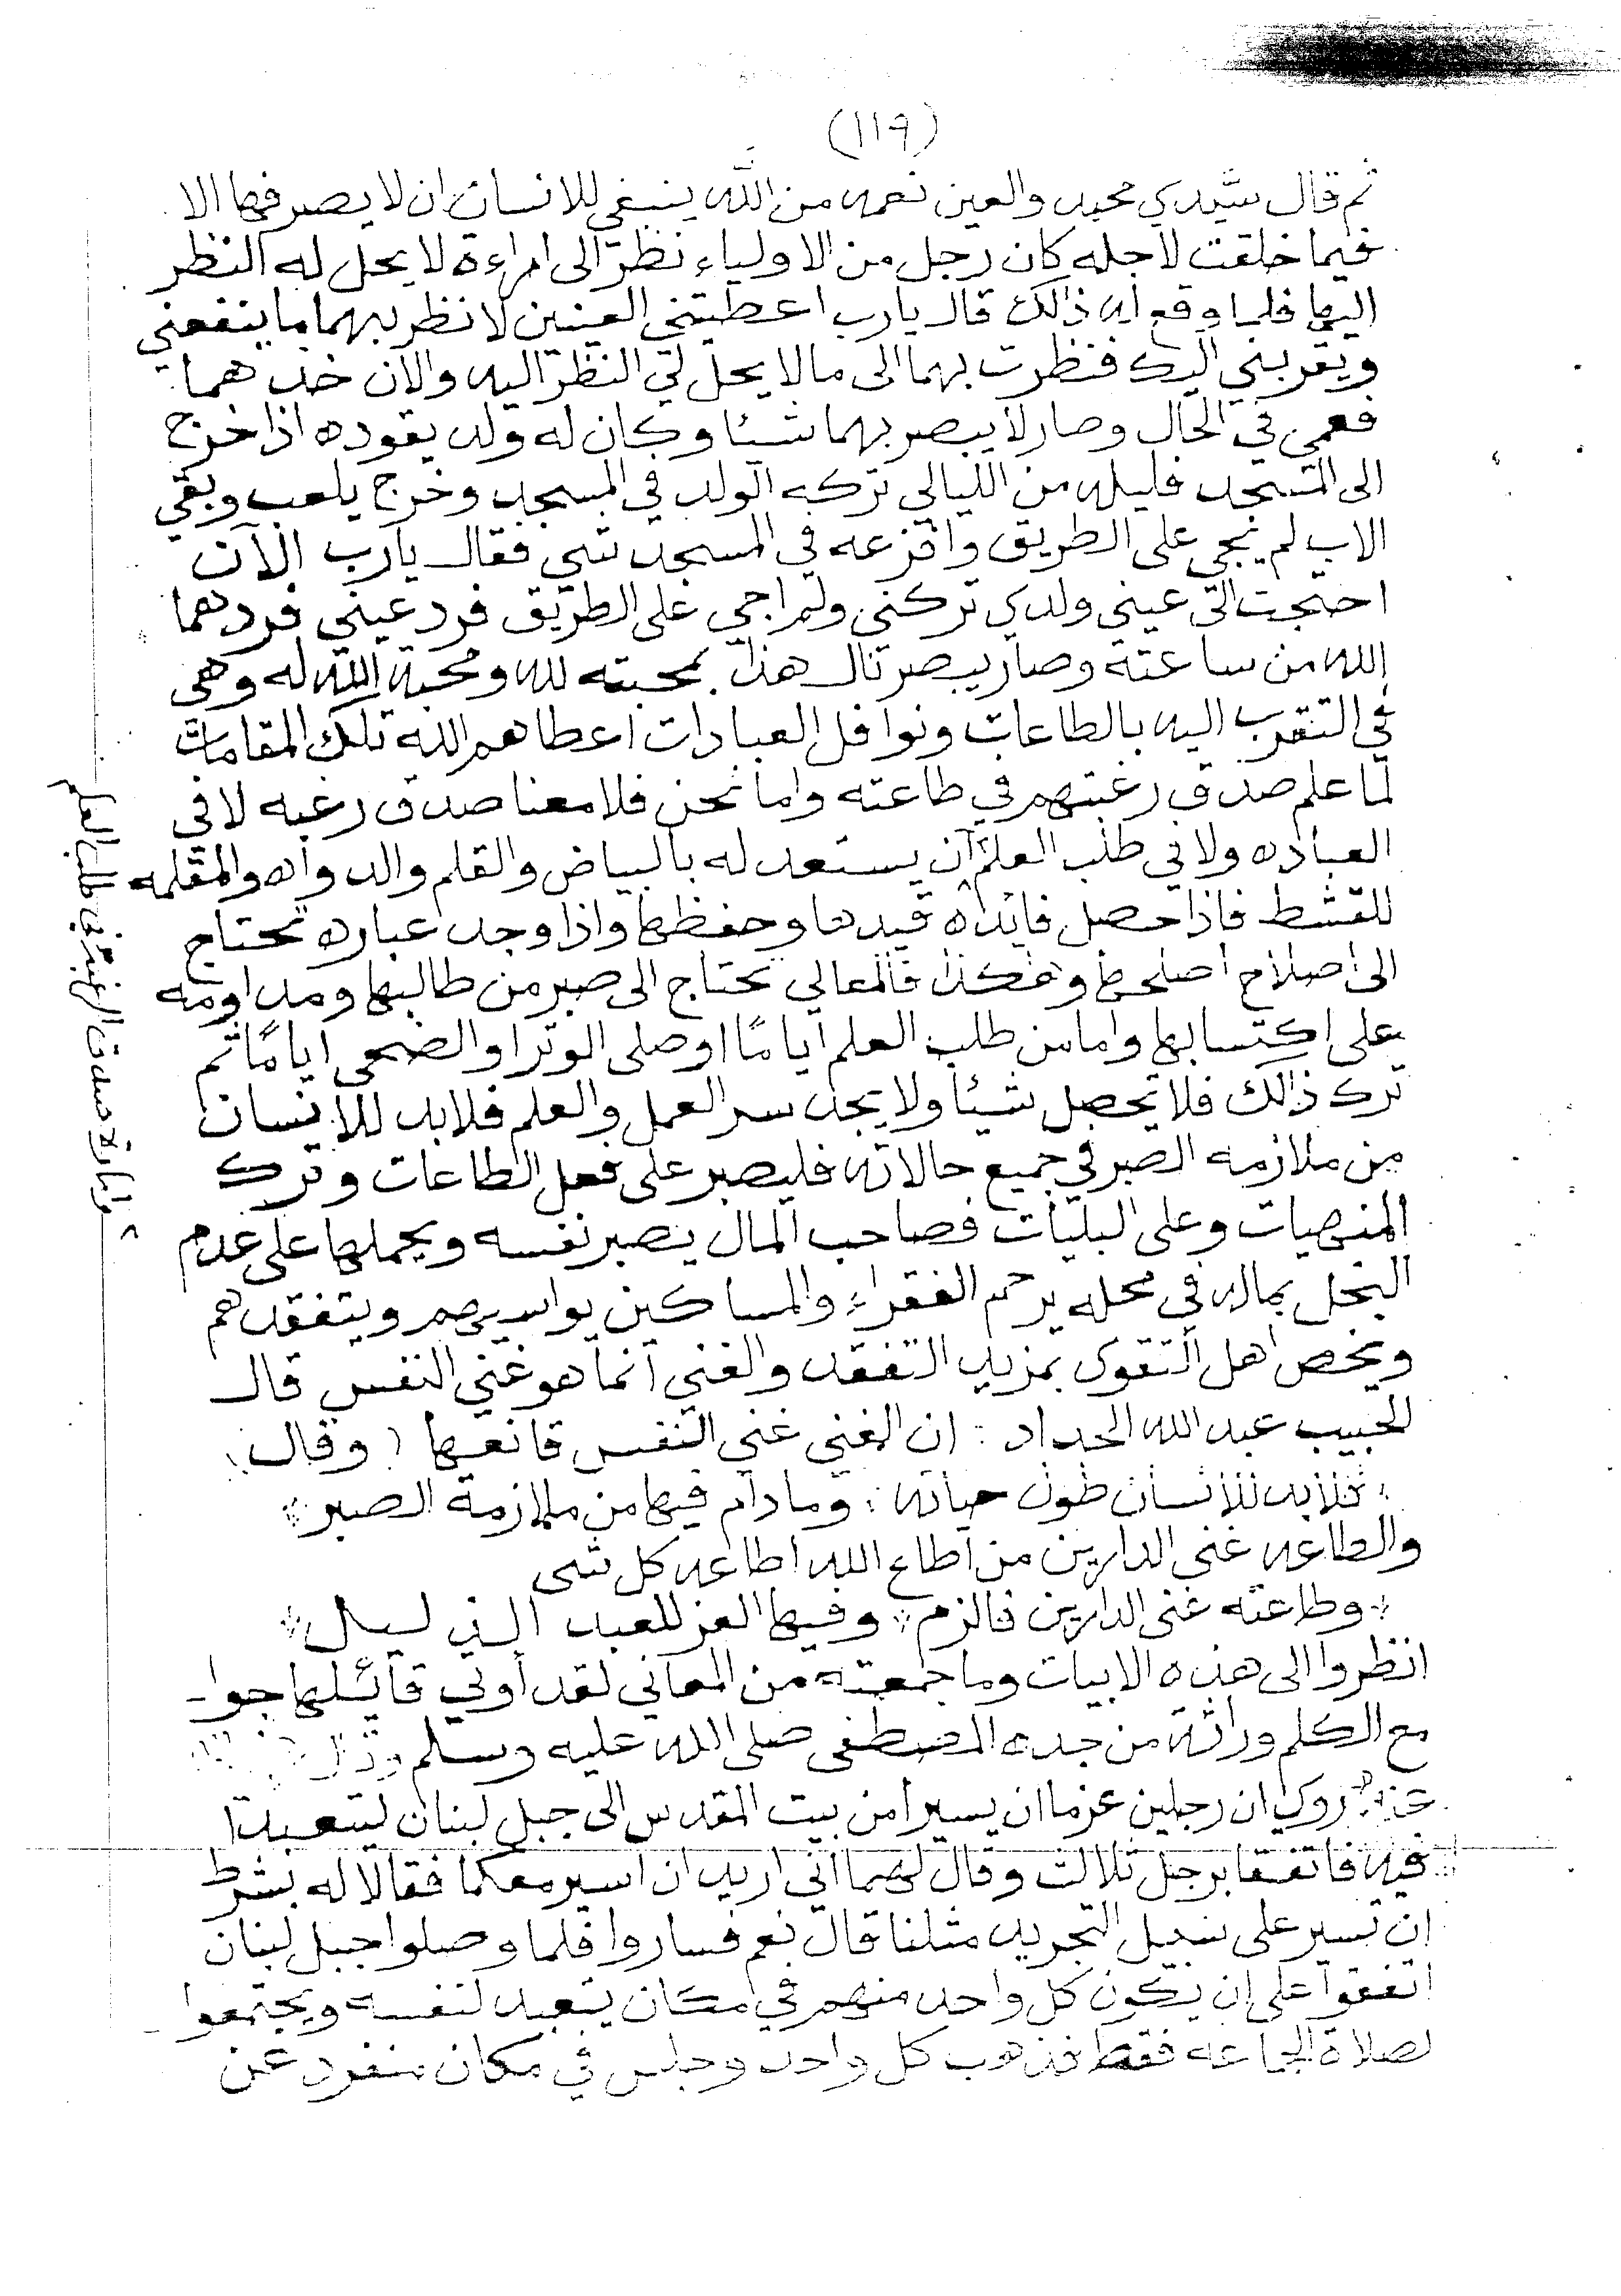 (١١٩)
ثم قال سيدي محمد والعين نعمه من الله ينبغي للانسان ان لا يصرفها الا
فيما خلقت لاجله كان رجل من الاولياء نظر الى امراءة لا يحل له النظر
اليها فلما وقع له ذالك قال يارب اعطيتني العينين لانظر بهما ما ينفعني
ويقربني اليك فنظرت بهما الى ما لا يحل لي النظر اليه والان خذهما
فعمي في الحال وصار لا يبصر بهما شيئا وكان له ولد يقوده اذا خرج
الى المسجد فليله من الليالي تركه الولد في المسجد وخرج يلعب وبقي
الاب لم يجي على الطريق وافزعه في المسجد شي فقال يارب الآن
احتجت الى عيني ولدي تركني ولم اجي على الطريق فرد عيني فردهما
الله من ساعته وصار يبصر نال هذا بمحبته لله ومحبة الله له وهي
في التقرب اليه بالطاعات ونوافل العبادات اعطاهم الله تلك المقامات
لما علم صدق رغبتهم في طاعته واما نحن فلا معنا صدق رغبه لا في
العباده ولا في طلب العلم ان يستعد له بالبياض والقلم والدواه والمقلمه
للقشط فاذا حصل فائده قيدها وحفظها واذا وجد عباره تحتاج
الى اصلاح اصلحها وهكذا فالمعالي تحتاج الى صبر من طالبها ومداومه
على اكتسابها واما من طلب العلم اياما او صلى الوتر او الضحى اياما ثم
ترك ذالك فلا يحصل شيئا ولا يجد سر العمل والعلم فلا بد للانسان
من ملازمه الصبر في جميع حالاته فليصبر على فعل الطاعات وترك
المنهيات وعلى البليات فصاحب المال يصبر نفسه ويحملها على عدم
البخل بماله في محله يرحم الفقراء والمساكين يواسيهم ويتفقدهم
ويخص اهل التقوى بمزيد التفقد والغني انما هو غني النفس قال
الحبيب عبد الله الحداد : ان الغني غني النفس قانعها ( وقال )
؛ فلا بد للانسان طول حياته ؛ وما دام فيها من ملازمة الصبر ؞
والطاعه غنى الدارين من اطاع الله اطاعه كل شي
؞ وطاعته غنى الدارين فالزم ؞ وفيها العز للعبد الذليل ؞
انظروا الى هذه الابيات وما جمعته من المعاني لقد أوتي قائلها جوا-
مع الكلم وراثة من جده المصطفى صلى الله عليه وسلم
روي ان رجلين عزما ان يسيرا من بيت المقدس الى جبل لبنان ليتعبدا
فيه فاتفقا برجل ثلالث وقال لهما اني اريد ان اسير معكما فقالا له بشرط
ان تسير على سبيل التجريد مثلنا قال نعم فساروا فلما وصلوا جبل لبنان
اتفقوا على ان يكون كل واحد منهم في مكان يتعبد لنفسه ويجتمعوا
لصلاة الجماعه فقط فذهب كل واحد وجلس في مكان منفرد عن
وامارة صدق الرغبة في طلب العلم